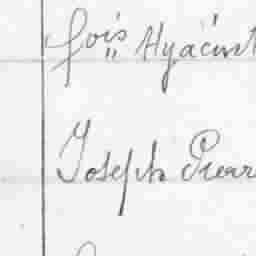 fois Hyacint
Joseph Pierr